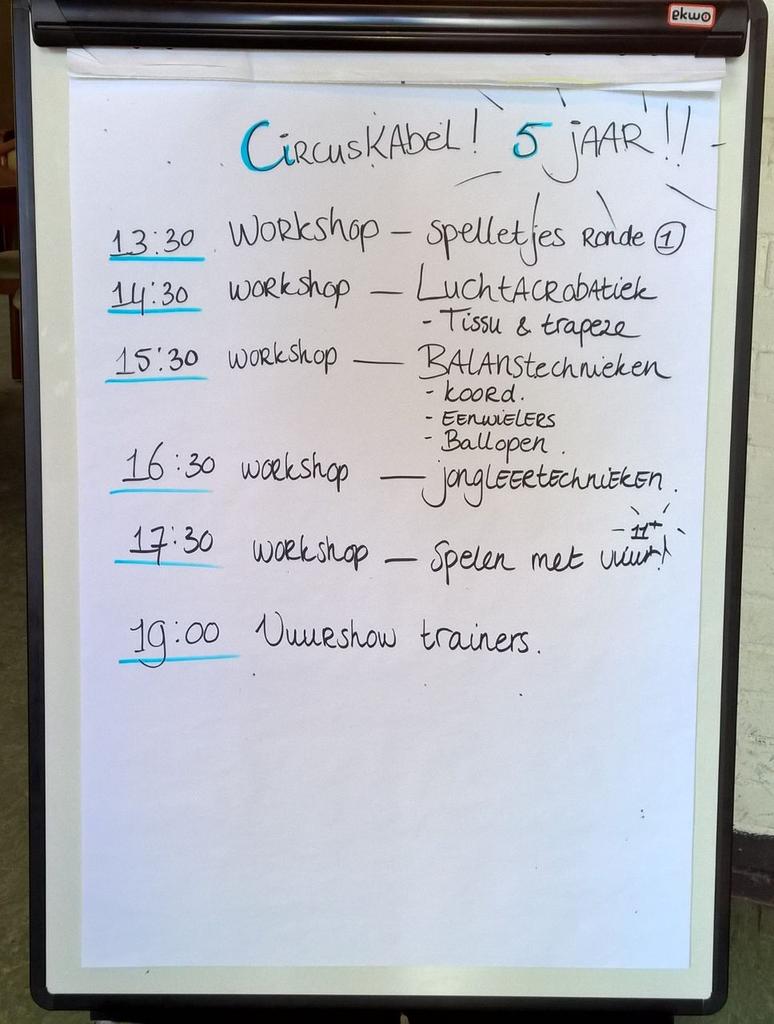 ekwo
CircusKAbel! 5 jAAR!!
13:30 WORKShop - Spelletjes Ronde 1
14:30 workshop - LuchtACRobAtiek
- Tissu & trapeze
15:30 workshop - BALANStechnieken
- koord.
- EENWIELERS
- Ballopen.
16:30 workshop - jongLEERtEchnIEKEN.
11+
17:30 workshop - Spelen met vuur!
19:00 Vuurshow trainers.